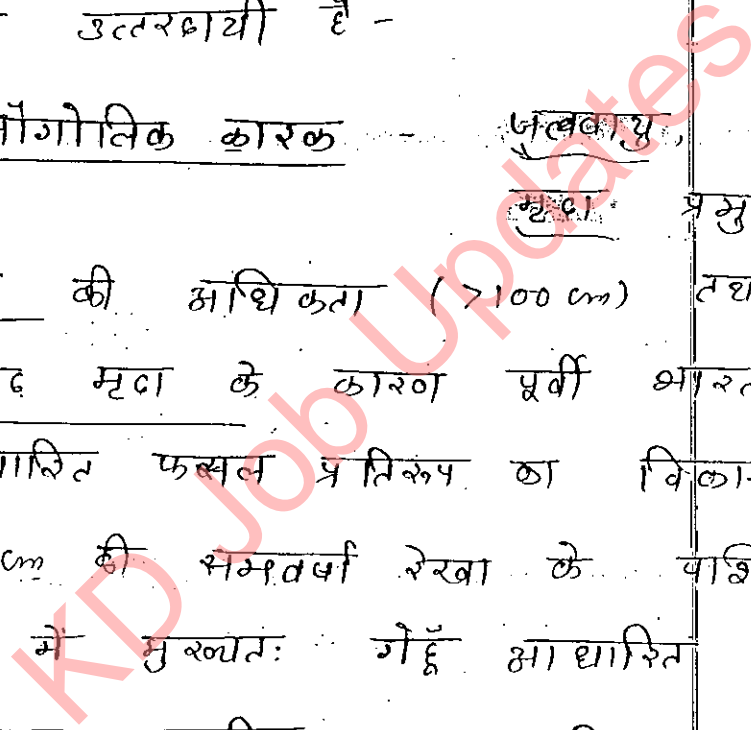 उत्तरदायी है -
भौगोलिक कारक - जलवायु,
मृदा प्रमु
की अधिकता (>100 cm) तथ
मृदा के कारण पूर्वी भारत
धारित फसल प्रतिरूप का विका
cm की समवर्षा रेखा के पश्चि
में मुख्यतः गेहूँ आधारित
KD Job Updates